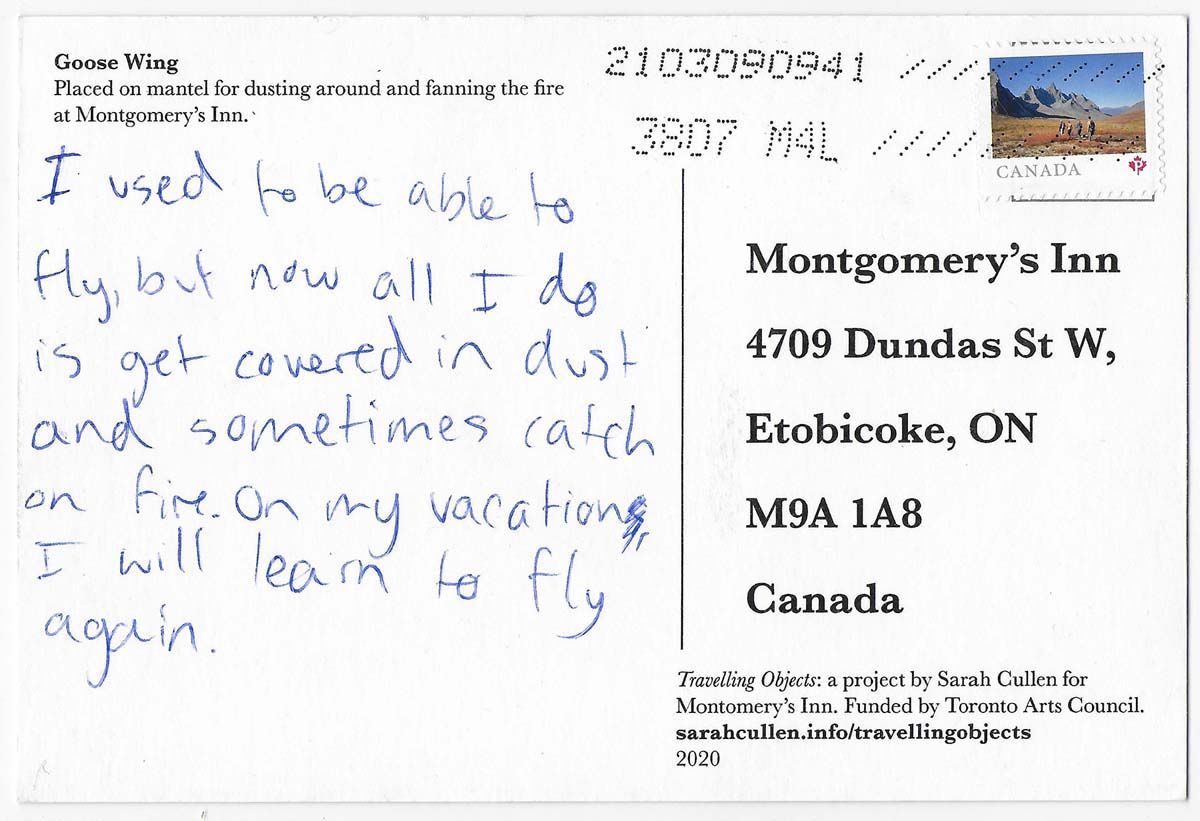 Goose Wing
Placed on mantel for dusting around and fanning the fire
at Montgomery's Inn.
I used to be able to
fly, but now all I do
is get covered in dust
and sometimes catch
on fire. On my vacation,
I will learn to fly
again.
2103090941
3807 M4L
CANADA
P
Montgomery's Inn
4709 Dundas St W,
Etobicoke, ON
M9A 1A8
Canada
Travelling Objects: a project by Sarah Cullen for
Montomery's Inn. Funded by Toronto Arts Council.
sarahcullen.info/travellingobjects
2020